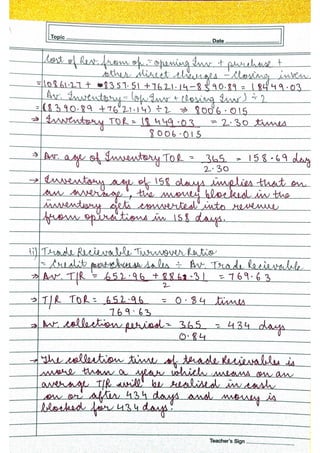 Topic
Date
Cost of Rev. from op. = opening Inv. + purchase +
other direct charges - Closing inven
= 10861.27 + 8357.51 + 7621.14 - 8590.89 = 18449.03
Av. Inventory - (op Inv + closing Inv) ÷ 2
= (8390.89 + 7621.14) ÷ 2 ⇒ 8006.015
→ Inventory TOR = 18449.03 = 2.30 times
8006.015
⇒ Av. age of Inventory TOR = 365 = 158.69 day
2.30
→ Inventory age of 158 days implies that on
an average, the money blocked in the
inventory gets converted into revenue
from operations in 158 days.
ii) Trade Recievable Turnover Ratio
= Credit sales ÷ Av. Trade Recievable
⇒ Av. T/R = 652.96 + 886.31 = 769.63
2
⇒ T/R TOR = 652.96 = 0.84 times
769.63
⇒ Av. collection period = 365 = 434 days
0.84
→ The collection time of trade Recievables is
more than a year which means on an
average T/R will be realised in cash
on or after 434 days and money is
blocked for 434 days.
Teacher's Sign